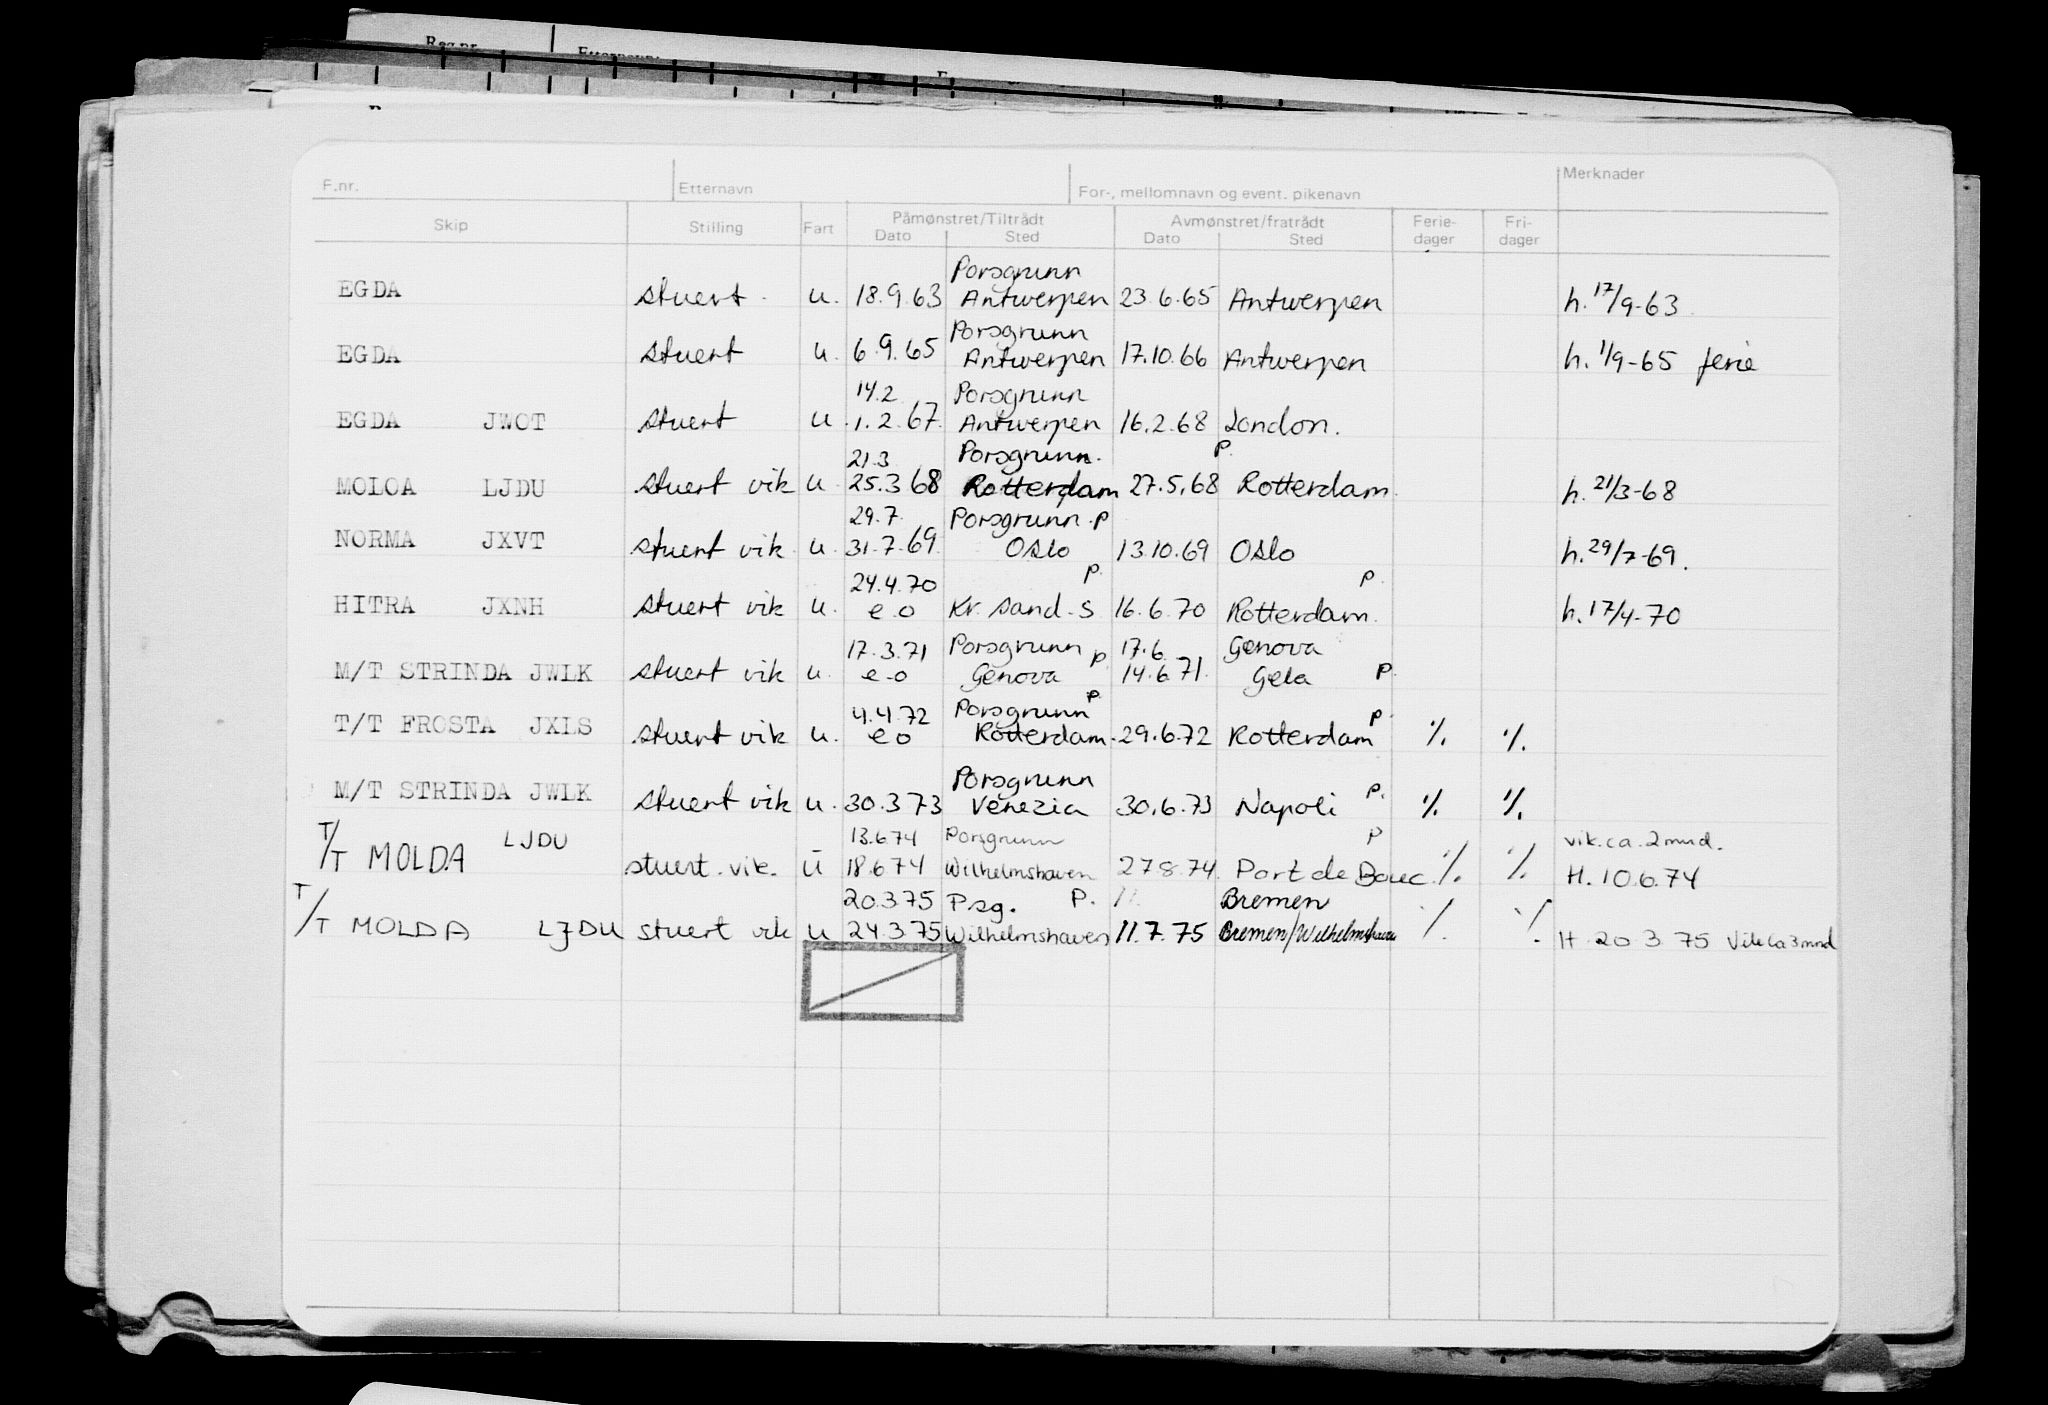 Reg.nr.
F.nr. Etternavn For-, mellomnavn og event. pikenavn Merknader
Skip Stilling Fart Påmønstret/Tiltrådt Avmønstret/fratrådt Ferie- Fri-
Dato Sted Dato Sted dager dager
Porsgrunn
EGDA stuert. u. 18.9.63 Antwerpen 23.6.65 Antwerpen h. 17/9-63.
Porsgrunn
EGDA stuert u. 6.9.65 Antwerpen 17.10.66 Antwerpen h. 1/9-65 ferie
14.2 Porsgrunn
EGDA JWOT stuert u. 1.2.67. Antwerpen 16.2.68 London.
21.3 Porsgrunn. P.
MOLOA LJDU stuert vik u. 25.3 68 Rotterdam 27.5.68 Rotterdam. h. 21/3-68
29.7. Porsgrunn. P
NORMA JXVT stuert vik. u. 31.7.69. Oslo 13.10.69 Oslo h. 29/7-69.
24.4.70 P. P.
HITRA JXNH stuert vik u. e o Kr. sand. S 16.6.70 Rotterdam. h. 17/4-70
17.3.71 Porsgrunn P. 17.6. Genova
M/T STRINDA JWLK stuert vik u. e-o Genova 14.6.71. Gela P.
4.4.72 Porsgrunn P. P.
T/T FROSTA JXLS stuert vik u. e o Rotterdam. 29.6.72 Rotterdam ٪. ٪.
Porsgrunn
M/T STRINDA JWLK stuert vik u. 30.3 73 Venezia 30.6.73 Napoli P. ٪. ٪.
13.6 74 Porsgrunn P vik. ca. 2 mnd.
T/T MOLDA LJDU stuert. vik. u 18.6 74 Wilhelmshaven 27 8.74. Port de Bouc ٪. ٪. H. 10.6.74
20.3 75 Psg. P. 11. Bremen
T/T MOLDA LJDU stuert vik u 24.3 75 Wilhelmshaven 11.7.75 Bremen/Wilhelmshaven ٪. ٪. H 20 3 75 Vik ca 3 mnd